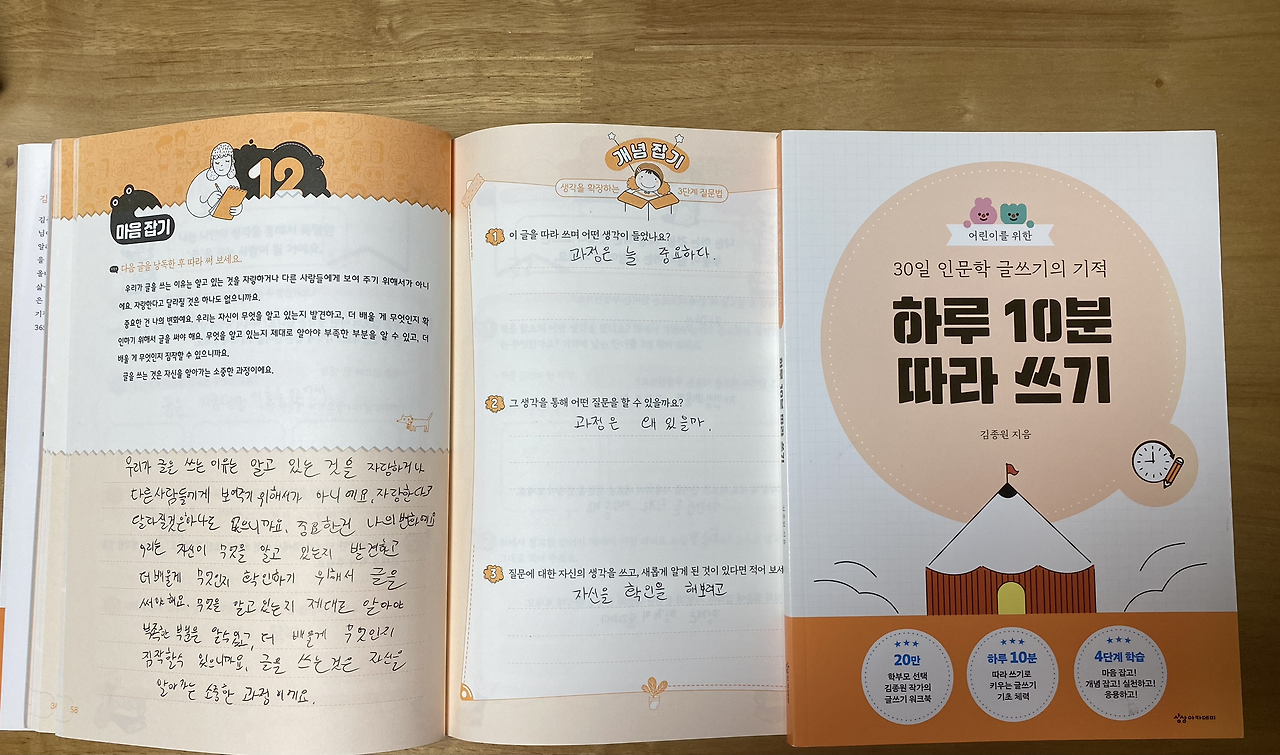 12
마음 잡기
다음 글을 낭독한 후 따라 써 보세요.
우리가 글을 쓰는 이유는 알고 있는 것을 자랑하거나 다른 사람들에게 보여 주기 위해서가 아니
에요. 자랑한다고 달라질 것은 하나도 없으니까요.
중요한 건 나의 변화예요. 우리는 자신이 무엇을 알고 있는지 발견하고, 더 배울 게 무엇인지 확
인하기 위해서 글을 써야 해요. 무엇을 알고 있는지 제대로 알아야 부족한 부분을 알 수 있고, 더
배울 게 무엇인지 짐작할 수 있으니까요.
글을 쓰는 것은 자신을 알아가는 소중한 과정이에요.
우리가 글은 쓰는 이유는 알고 있는 것을 자랑하거나
다른사람들에게 보여주기 위해서가 아니예요. 자랑한다고
달라질것은하나도 없으니까요. 중요한건 나의변화예요
우리는 자신이 무엇을 알고 있는지 발견하고
더배울게 무엇인지 확인하기 위해서 글을
써야해요. 무엇을 알고있는지 제대로 알아야
부족한 부분을 알수있고, 더 배울게 무엇인지
짐작할수 있으니까요. 글을 쓰는것은 자신을
알아가는 소중한 과정이에요.
58
개념 잡기
생각을 확장하는 3단계 질문법
1 이 글을 따라 쓰며 어떤 생각이 들었나요?
과정은 늘 중요하다.
2 그 생각을 통해 어떤 질문을 할 수 있을까요?
과정은 왜 있을까.
3 질문에 대한 자신의 생각을 쓰고, 새롭게 알게 된 것이 있다면 적어 보세
자신을 확인을 해보려고
어린이를 위한
30일 인문학 글쓰기의 기적
하루 10분
따라 쓰기
김종원 지음
20만
학부모 선택
김종원 작가의
글쓰기 워크북
하루 10분
따라 쓰기로
키우는 글쓰기
기초 체력
4단계 학습
마음 잡고!
개념 잡고! 실천하고!
응용하고!
상상아카데미